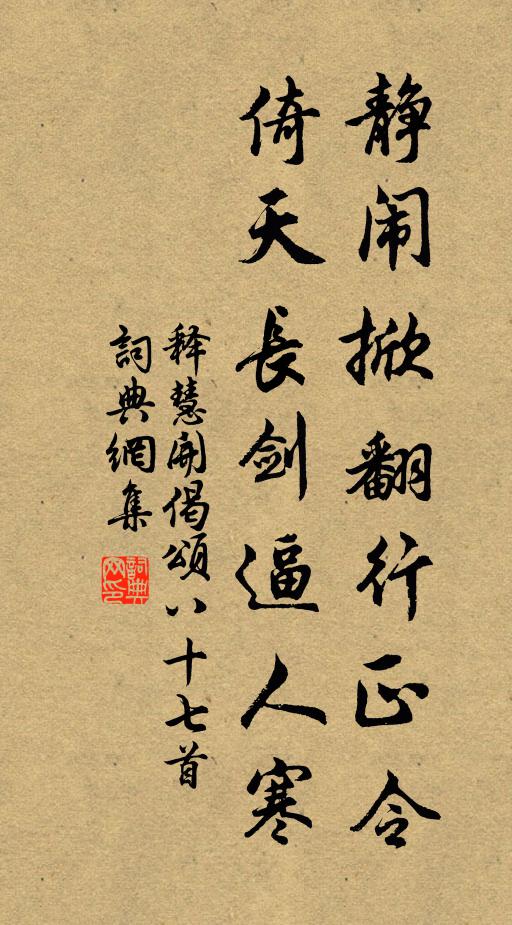 静闹掀翻行正令
倚天長剑逼人寒
释慧開偈頌八十七首
詞典網集
詞典网印